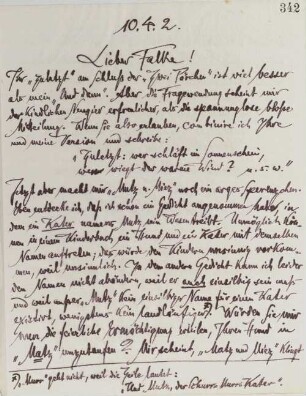 342
10.4.2.
Lieber Falke!
Ihr „Zuletzt“ am Schluß der „Zwei Pärchen“ ist viel besser
als mein „Und dann“. Aber die Fragewendung scheint mir
der kindlichen Neugier erfreulicher, als die spannungslose bloße
Mitteilung. Wenn Sie also erlauben, combinire ich Ihre
und meine Version und schreibe:
„Zuletzt: wer schläft im Sonnenschein,
wen wiegt der warme Wind? u. s. w.“
Jetzt aber macht mir „Mutz u. Miez“ noch ein arges
Eben entdecke ich, daß ich schon ein Gedicht angenommen habe, in
dem ein Kater namens Mutz sein Wesen treibt. Unmöglich können
in einem Kinderbuch ein Hund und ein Kater mit demselben
Namen auftreten; das würde den Kindern unsinnig vorkommen,
weil unsinnlich. In dem andern Gedicht kann ich leider
den Namen nicht abändern, weil er auch einsilbig sein muß
und weil außer „Mutz“ kein einsilbiger Name für einen Kater
existirt, wenigstens kein landläufiger.*) Würden Sie mir
nun die feierliche Ermächtigung erteilen, Ihren Hund in
„Matz“ umzutaufen? Mir scheint, „Matz und Miez“ klingt
*) „Murr“ geht nicht, weil die Zeile lautet:
„Und Mutz, der Schnurr-Murr-Kater“.